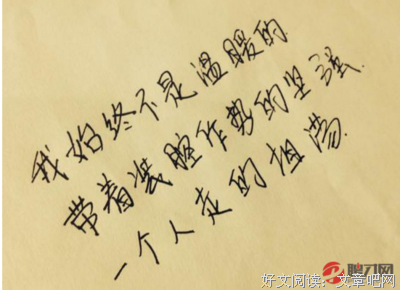 我始终不是温暖的
带着装腔作势的坚强
一个人走的坦荡
好文阅读：文章吧网